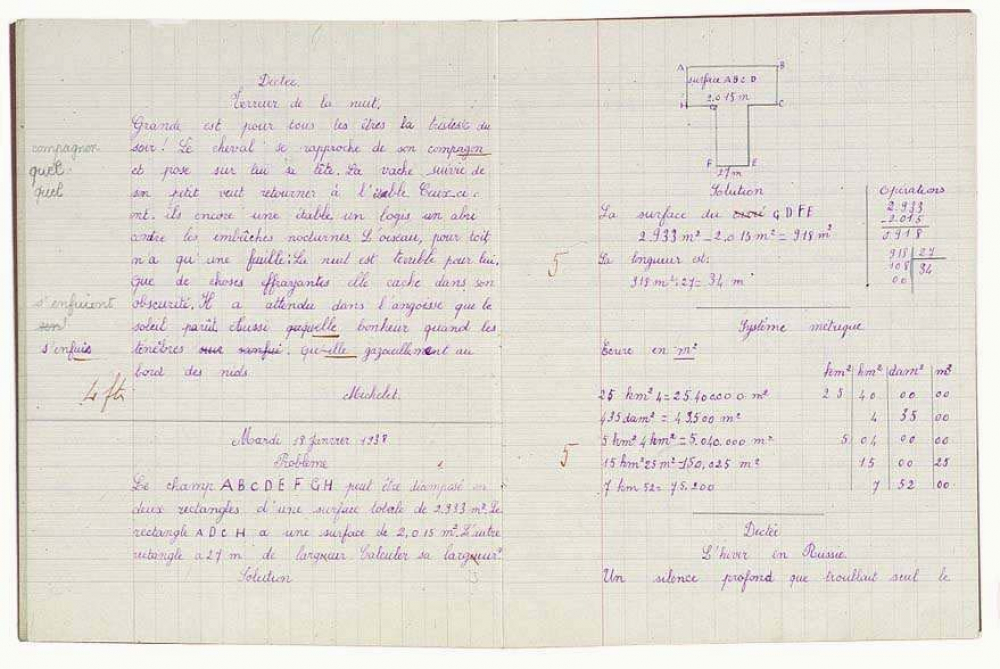 Dictée
Terreur de la nuit.
Grande est pour tous les êtres la tristesse du
compagnon
soir! Le cheval se rapproche de son compagon
quel
et pose sur lui sa tête. La vache suivie de
quel
son petit veut retourner à l'étable Ceux-ci
ont-ils encore une étable un logis un abri
contre les embûches nocturnes L'oiseau, pour toit
n'a qu'une feuille: La nuit est terrible pour lui.
Que de choses effrayantes elle cache dans son
s'enfuient
obscurité. Il a attendu dans l'angoisse que le
soleil parût. Aussi quelle bonheur quand les
s'enfuie
ténèbres
Quelle gazouillement au
bord des nids
4 fts
Michelet.
Mardi 18 Janvier 1938
Problème
Le champ ABCDEFGH peut être décomposé en
deux rectangles d'une surface totale de 2.933 m². Le
rectangle ADCH a une surface de 2,015 m². L'autre
rectangle a 27 m de largueur Calculer sa largueur
Solution
A B
surface ABCD
2.015 m
H G C
F E
27m
Solution
La surface du GDFE
2.933 m² - 2.015 m² = 918 m²
5
La longueur est:
918 m² : 27 = 34 m
Opérations
2.933
- 2.015
0918
918 27
108 34
00
Système métrique
Ecrire en m²
km² hm² dam² m²
25 hm² 4 = 2540000 m² 25 40 00 00
435 dam² = 43500 m² 4 35 00
5 km² 4 hm² = 5.040.000 m² 5 04 00 00
5
15 hm² 25 m² = 150,025 m² 15 00 25
7 hm 52 = 75.200 7 52 00
Dictée
L'hiver en Russie
Un silence profond que troublait seul le